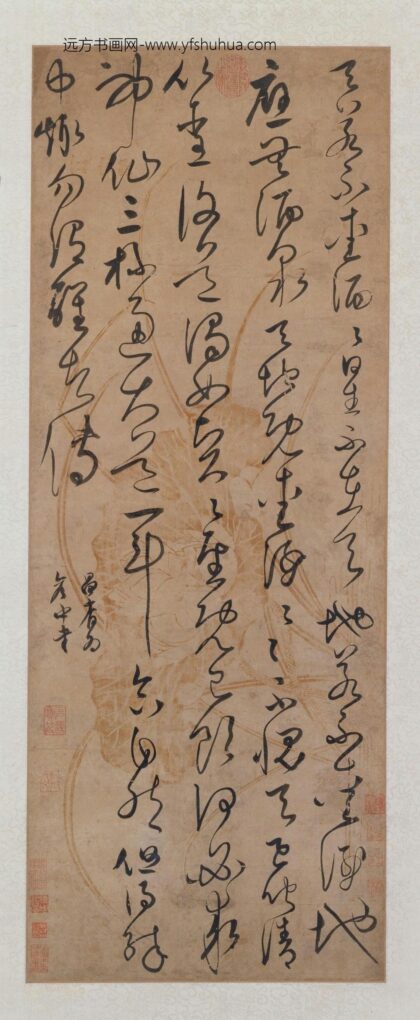 远方书画网-www.yfshuhua.com
天若不愛酒〻星不在天地若不愛酒地
應無酒泉天地既愛酒〻〻不愧天已聞清
比聖復道濁如賢〻聖既已飲何必求
神仙三杯通大道一斗合自然但得醉
中趣勿謂醒者傳